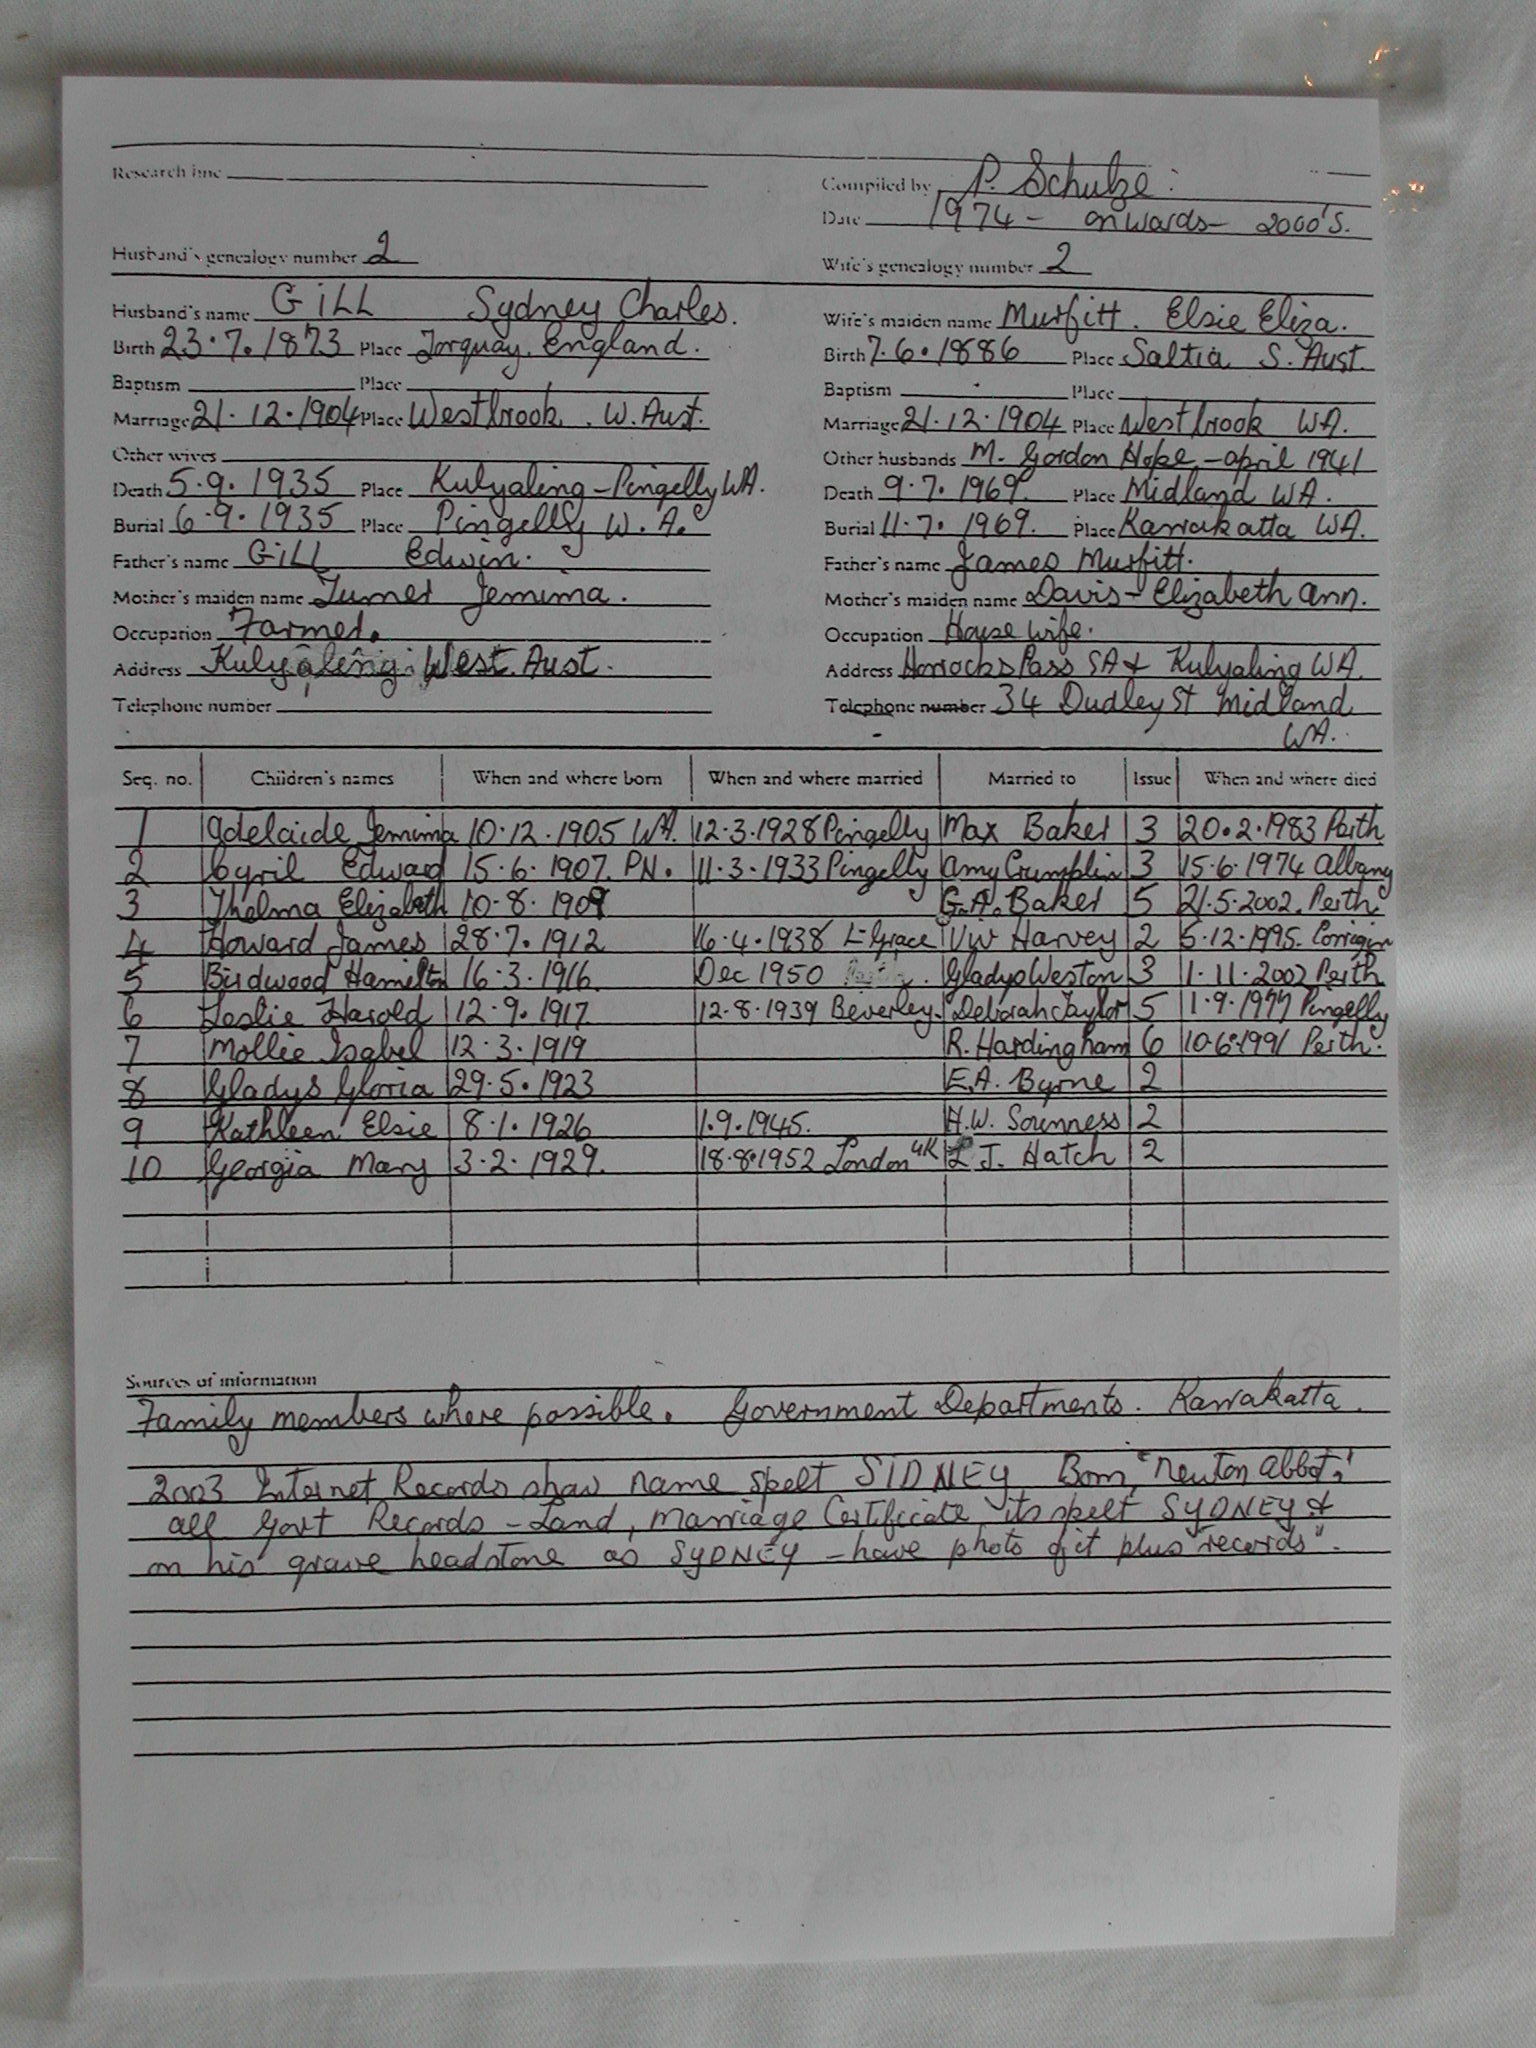 Research line
Compiled by P. Schulze.
Date 1974 - onwards - 2000's.
Husband's genealogy number 2
Wife's genealogy number 2
Husband's name GILL Sydney Charles.
Birth 23.7.1873 Place Torquay. England.
Baptism Place
Marriage 21.12.1904 Place Westbrook. W. Aust.
Other wives
Death 5.9.1935 Place Kulyaling - Pingelly WA.
Burial 6.9.1935 Place Pingelly W.A.
Father's name GILL Edwin.
Mother's maiden name Turner Jemima.
Occupation Farmer.
Address Kulyaling. West. Aust.
Telephone number
Wife's maiden name Murfitt. Elsie Eliza.
Birth 7.6.1886 Place Saltia S. Aust.
Baptism Place
Marriage 21.12.1904 Place Westbrook WA.
Other husbands M. Gordon Hope - april 1941
Death 9.7.1969. Place Midland WA.
Burial 11.7.1969. Place Karrakatta WA.
Father's name James Murfitt.
Mother's maiden name Davis - Elizabeth ann.
Occupation House wife.
Address Horrocks Pass SA & Kulyaling WA.
Telephone number 34 Dudley St Midland
WA.
Seq. no. Children's names When and where born When and where married Married to Issue When and where died
1 Adelaide Jemima 10.12.1905 WA. 12.3.1928 Pingelly Max Baker 3 20.2.1983 Perth
2 Cyril Edward 15.6.1907. PN. 11.3.1933 Pingelly Amy Crumplin 3 15.6.1974 Albany
3 Thelma Elizabeth 10.8.1909 G.A. Baker 5 21.5.2002. Perth
4 Howard James 28.7.1912 16.4.1938 L-Grace V.W Harvey 2 5.12.1995. Corrigin
5 Birdwood Hamilton 16.3.1916. Dec 1950 Gladys Weston 3 1.11.2002 Perth
6 Leslie Harold 12.9.1917 12.8.1939 Beverley. Deborah Taylor 5 1.9.1977 Pingelly
7 Mollie Isabel 12.3.1919 R. Hardingham 6 10.6.1991 Perth.
8 Gladys Gloria 29.5.1923 E.A. Byrne 2
9 Kathleen Elsie 8.1.1926 1.9.1945. H.W. Sounness 2
10 Georgia Mary 3.2.1929. 18.8.1952 London UK J. Hatch 2
Sources of information
Family members where possible. Government Departments. Karrakatta.
2003 Internet Records show name spelt SIDNEY Born "Newton Abbot"
all Govt Records - Land, Marriage Certificate, its spelt SYDNEY &
on his grave headstone as SYDNEY - have photo of it plus "records".